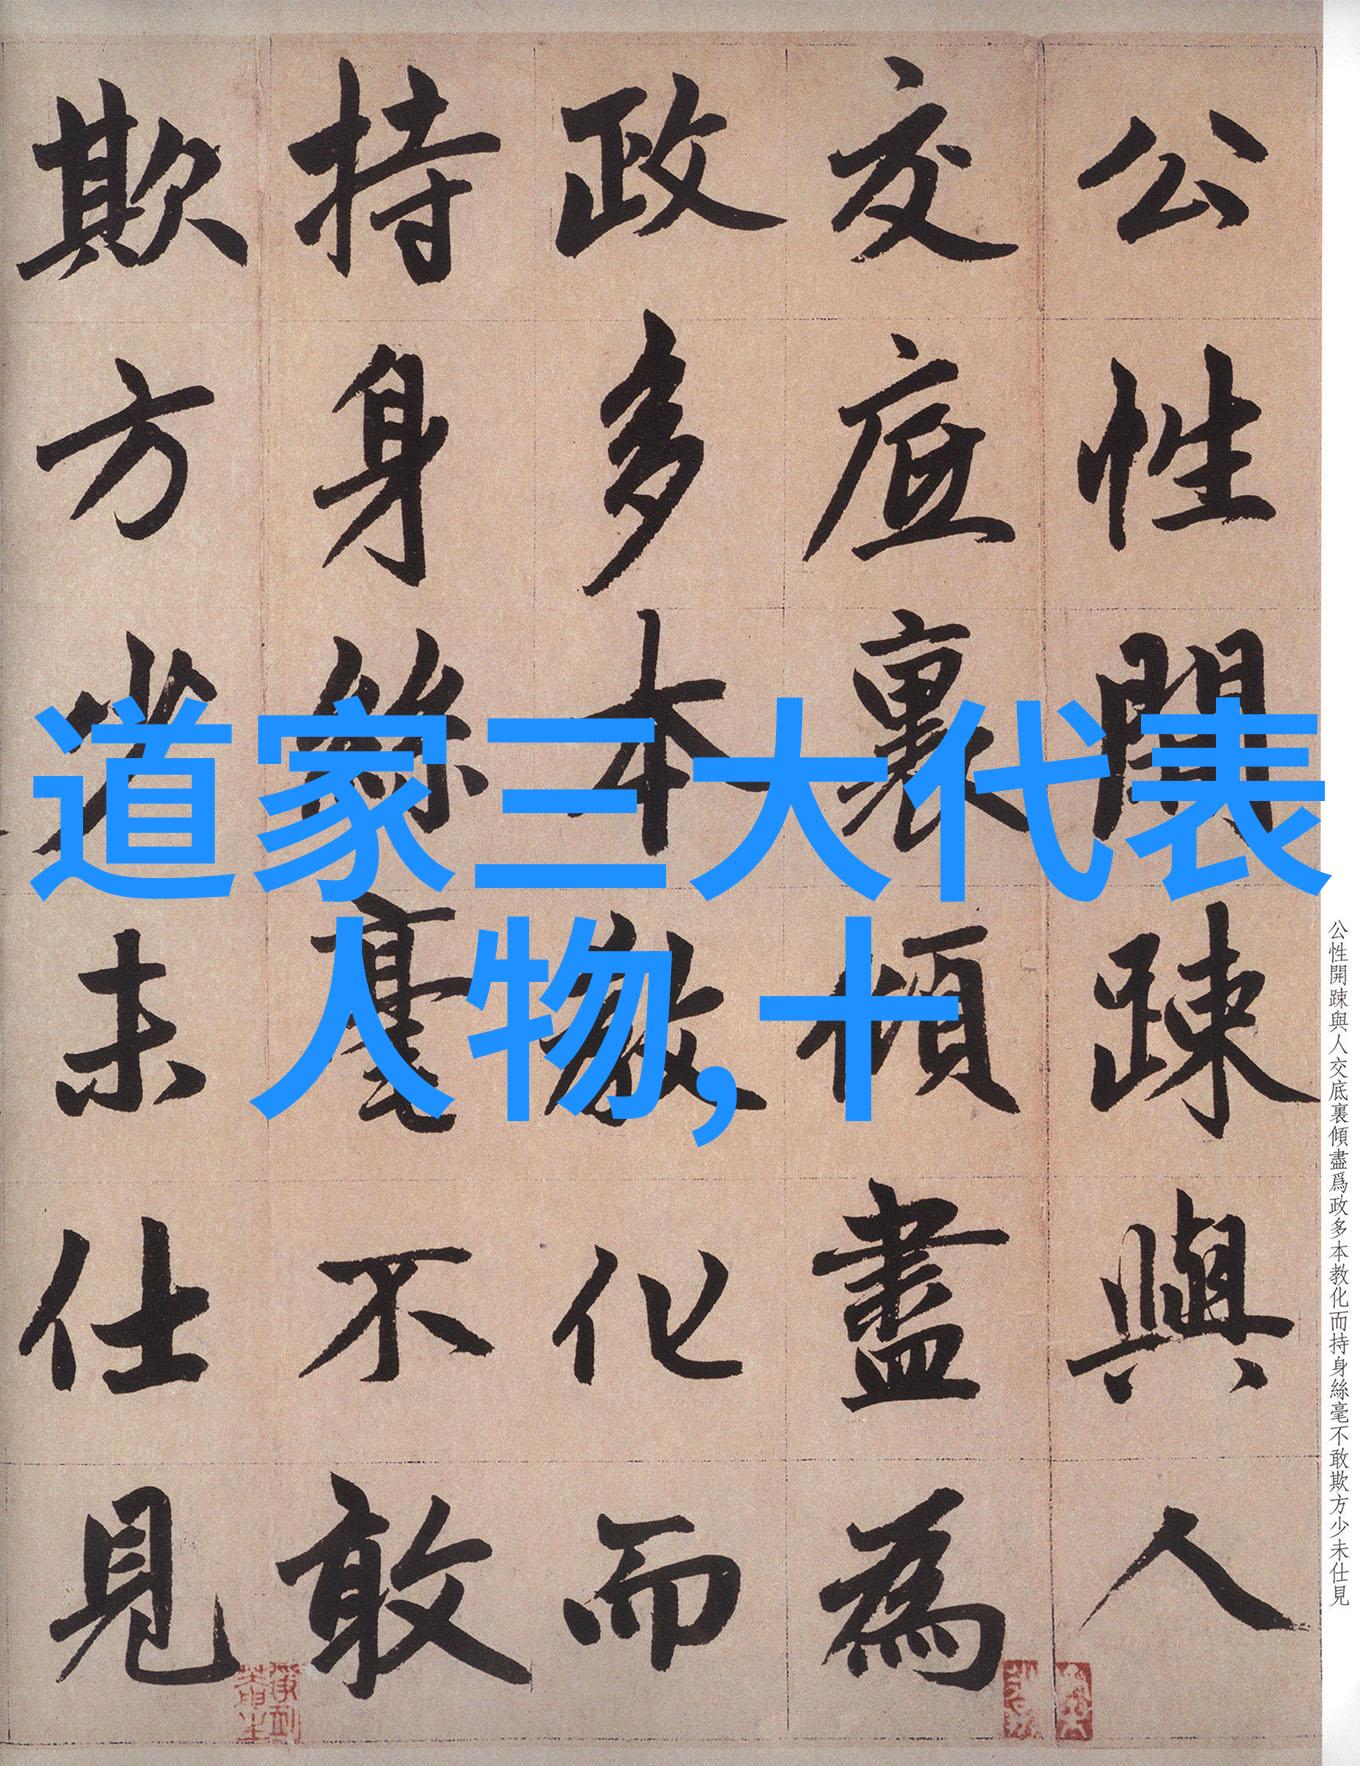 公性開踈與人
交底裏傾盡為
政多本教化而
持身絲毫不敢
欺方少未仕見
道家三大代表
人物,十
公性開踈與人交底裏傾盡爲政多本教化而持身絲毫不敢欺方少未仕見